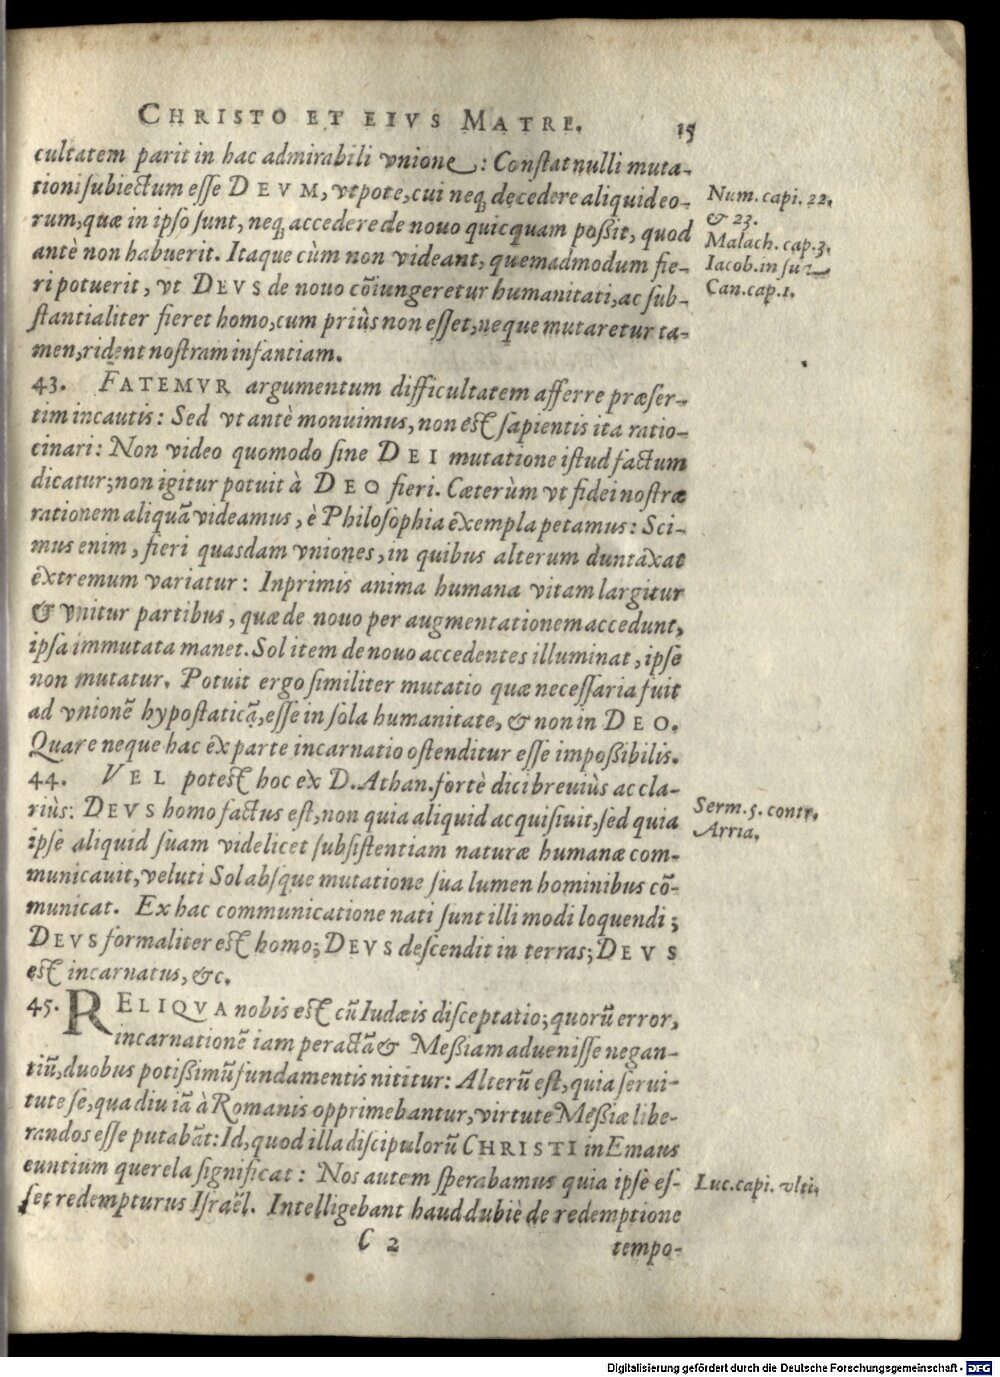 CHRISTO ET EIVS MATRE. 15
cultatem parit in hac admirabili vnione: Constat nulli muta-
tioni subiectum esse DEVM, vtpote, cui neq; decedere aliquid eo-
rum, quæ in ipso sunt, neq; accedere de nouo quicquam poßit, quod
antè non habuerit. Itaque cùm non videant, quemadmodum fie-
ri potuerit, vt DEVS de nouo cõiungeretur humanitati, ac sub-
stantialiter fieret homo, cum priùs non esset, neque mutaretur ta-
men, rident nostram infantiam.
Num. capi. 22.
& 23.
Malach. cap. 3.
Iacob. in sua
Can. cap. 1.
43. FATEMVR argumentum difficultatem afferre præser-
tim incautis: Sed vt antè monuimus, non est sapientis ita ratio-
cinari: Non video quomodo sine DEI mutatione istud factum
dicatur; non igitur potuit à DEO fieri. Cæterùm vt fidei nostræ
rationem aliquã videamus, è Philosophia exempla petamus: Sci-
mus enim, fieri quasdam vniones, in quibus alterum duntaxat
extremum variatur: Inprimis anima humana vitam largitur
& vnitur partibus, quæ de nouo per augmentationem accedunt,
ipsa immutata manet. Sol item de nouo accedentes illuminat, ipse
non mutatur. Potuit ergo similiter mutatio quæ necessaria fuit
ad vnionẽ hypostaticã, esse in sola humanitate, & non in DEO.
Quare neque hac ex parte incarnatio ostenditur esse impoßibilis.
44. VEL potest hoc ex D. Athan. fortè dici breuiùs ac cla-
riùs: DEVS homo factus est, non quia aliquid acquisiuit, sed quia
ipse aliquid suam videlicet subsistentiam naturæ humanæ com-
municauit, veluti Sol absque mutatione sua lumen hominibus cõ-
municat. Ex hac communicatione nati sunt illi modi loquendi;
DEVS formaliter est homo; DEVS descendit in terras; DEVS
est incarnatus, &c.
Serm. 5. contr.
Arria.
45. RELIQVA nobis est cũ Iudæis disceptatio; quorũ error,
incarnationẽ iam peractã & Meßiam aduenisse negan-
tiũ, duobus potißimũ fundamentis nititur: Alterũ est, quia serui-
tute se, qua diu iã à Romanis opprimebantur, virtute Meßiæ libe-
randos esse putabãt: Id, quod illa discipulorũ CHRISTI in Emaus
euntium querela significat: Nos autem sperabamus quia ipse es-
set redempturus Israël. Intelligebant haud dubiè de redemptione
Luc. capi. vlti.
C 2 tempo-
Digitalisierung gefördert durch die Deutsche Forschungsgemeinschaft - DFG